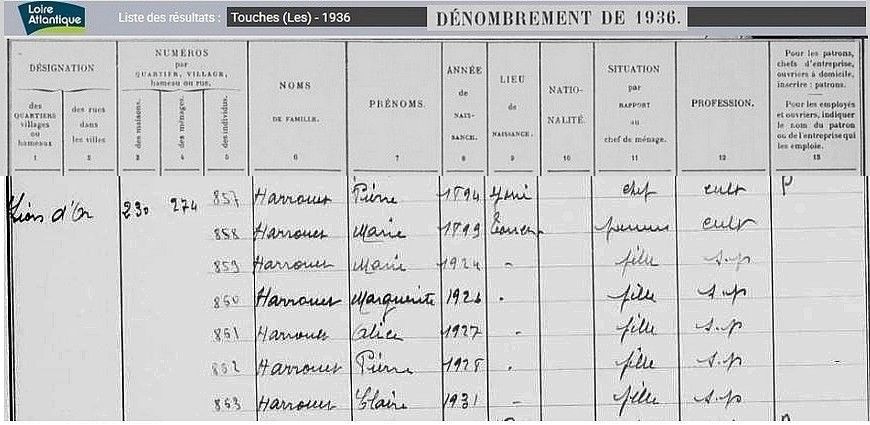 Loire
Atlantique
Liste des résultats : Touches (Les) - 1936
DÉNOMBREMENT DE 1936.
DÉSIGNATION
des QUARTIERS villages ou hameaux
des rues dans les villes
NUMÉROS par QUARTIER, VILLAGE, hameau ou rue.
des maisons.
des ménages.
des individus.
NOMS DE FAMILLE.
PRÉNOMS.
ANNÉE de NAIS-SANCE.
LIEU de NAISSANCE.
NATIO-NALITÉ.
SITUATION par RAPPORT au chef de ménage.
PROFESSION.
Pour les patrons, chefs d'entreprise, ouvriers à domicile, inscrire : patrons.
Pour les employés et ouvriers, indiquer le nom du patron ou de l'entreprise qui les emploie.
1 2 3 4 5 6 7 8 9 10 11 12 13
Lion d'Or 230 274 857 Harrouet Pierre 1894 chef cult P
858 Harrouet Marie 1899 cult
859 Harrouet Marie 1924 - fille s.p
860 Harrouet Marguerite 1926 . fille s.p
861 Harrouet Alice 1927 - fille s.p
862 Harrouet Pierre 1928 . fille s.p -
863 Harrouet Claire 1931 - fille s.p